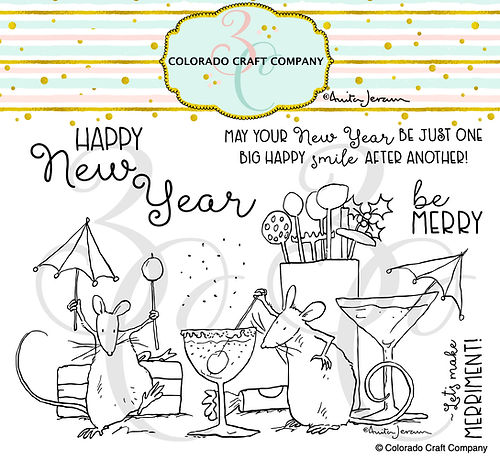 3C
COLORADO CRAFT COMPANY
©Anita Jeram
HAPPY
New
Year
MAY YOUR New Year BE JUST ONE
BIG HAPPY smile AFTER ANOTHER!
be
MERRY
~Let's make
MERRIMENT!
©Anita Jeram
© Colorado Craft Company